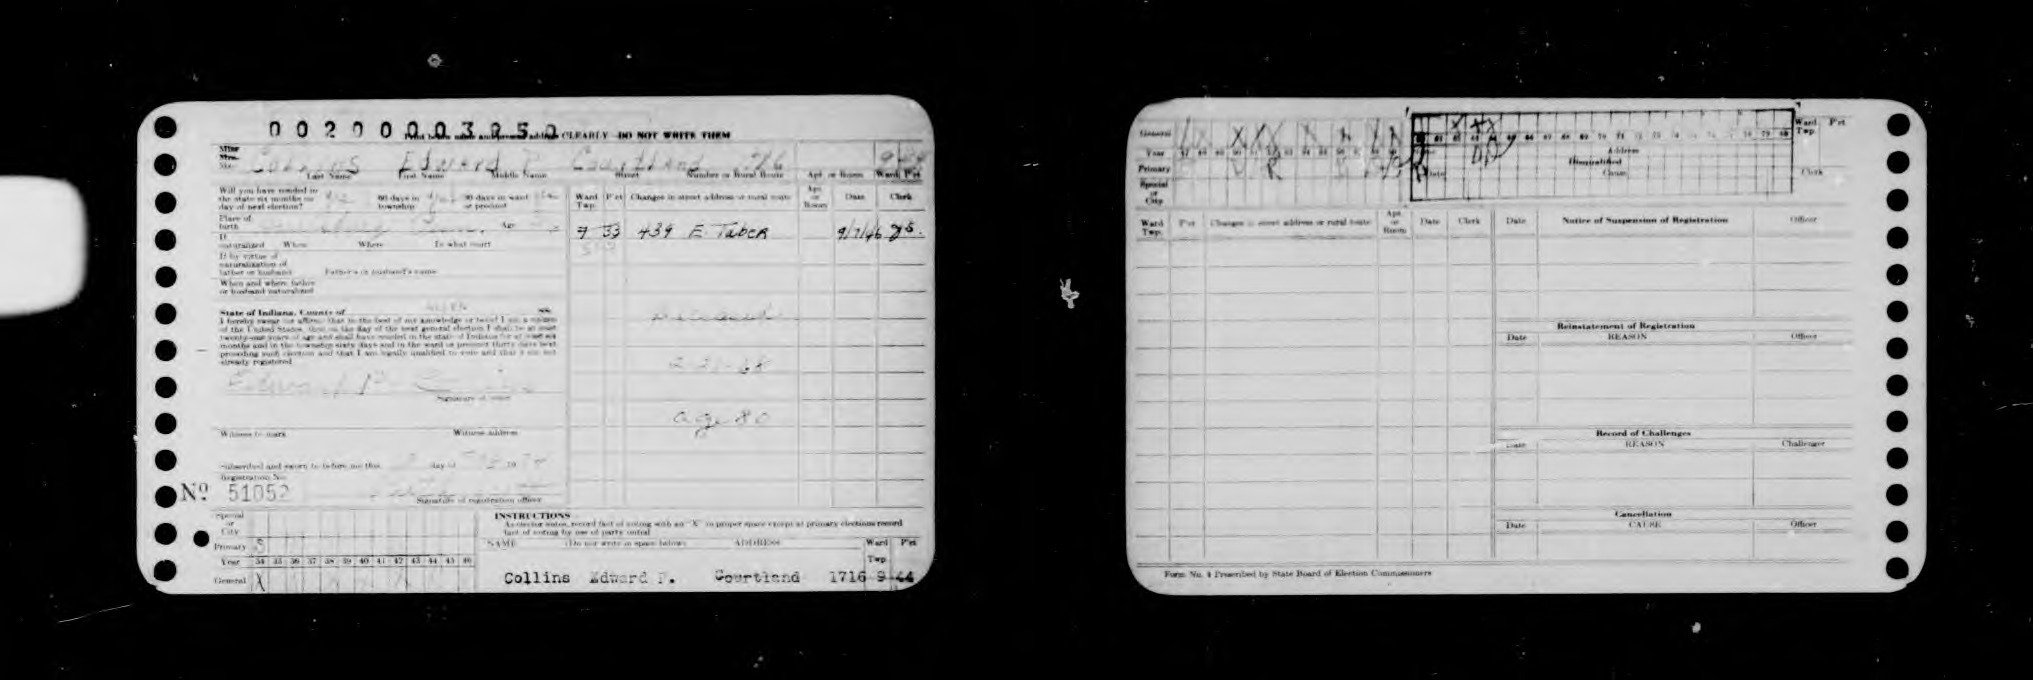 0020003050
Print below name and present address CLEARLY—DO NOT WRITE THEM
Miss
Mrs.
Mr. Collins Edward P. Courtland 1716 9 44
Last Name First Name Middle Name Street Number or Rural Route Apt. or Room Ward Pct
Will you have resided in
the state six months on
day of next election? 60 days in
township 30 days in ward
or precinct
Ward
Twp. P'ct Changes in street address or rural route Apt.
or
Room Date Clerk
Place of
birth Age
7 33 439 E. Taber 9/7/46
If
naturalized When Where In what court
If by virtue of
naturalization of
father or husband Father's or husband's name
When and where father
or husband naturalized
State of Indiana, County of Allen ss.
I hereby swear (or affirm) that to the best of my knowledge or belief I am a citizen
of the United States, that on the day of the next general election I shall be at least
twenty-one years of age and shall have resided in the state of Indiana for at least six
months and in the township sixty days and in the ward or precinct thirty days next
preceding such election and that I am legally qualified to vote and that I am not
already registered.
Deceased
2-21-68
age 80
Edward P. Collins
Signature of voter
Witness to mark Witness address
Subscribed and sworn to before me this day of 19
Registration No.
Nº 51052
Signature of registration officer
Special
or
City
Primary
Year 34 35 36 37 38 39 40 41 42 43 44 45 46
General X
INSTRUCTIONS
As elector votes, record fact of voting with an "X" in proper space except at primary elections record
fact of voting by use of party initial
NAME (Do not write in space below) ADDRESS Ward
Twp. P'ct
Collins Edward P. Courtland 1716 9 44
General
Year 47 48 49 50 51 52 53 54 55 56 57 58 59
Primary
Special
or
City
Ward
Twp. P'ct
Address
Disqualified
Date Cause Clerk
Ward
Twp. P'ct Changes in street address or rural route Apt.
or
Room Date Clerk
Date Notice of Suspension of Registration Officer
Reinstatement of Registration
Date REASON Officer
Record of Challenges
Date REASON Challenger
Cancellation
Date CAUSE Officer
Form No. 4 Prescribed by State Board of Election Commissioners